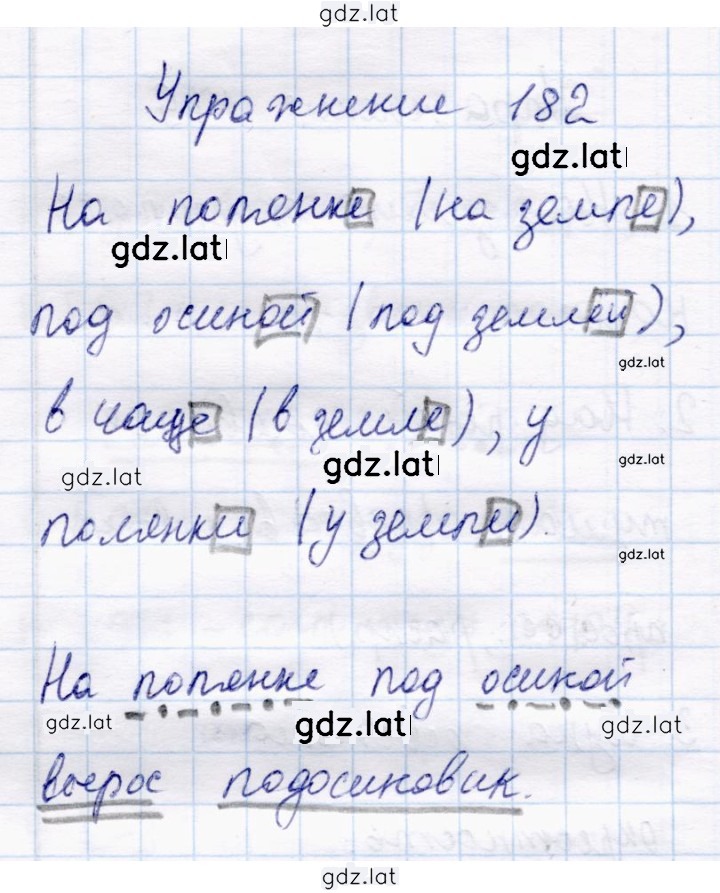 gdz.lat
Упражнение 182
gdz.lat
На полянке (на земле),
gdz.lat
под осиной (под землей),
gdz.lat
в чаще (в земле), у
gdz.lat gdz.lat gdz.lat
полянки (у земли).
gdz.lat
На полянке под осиной
gdz.lat gdz.lat gdz.lat
вырос подосиновик.
gdz.lat